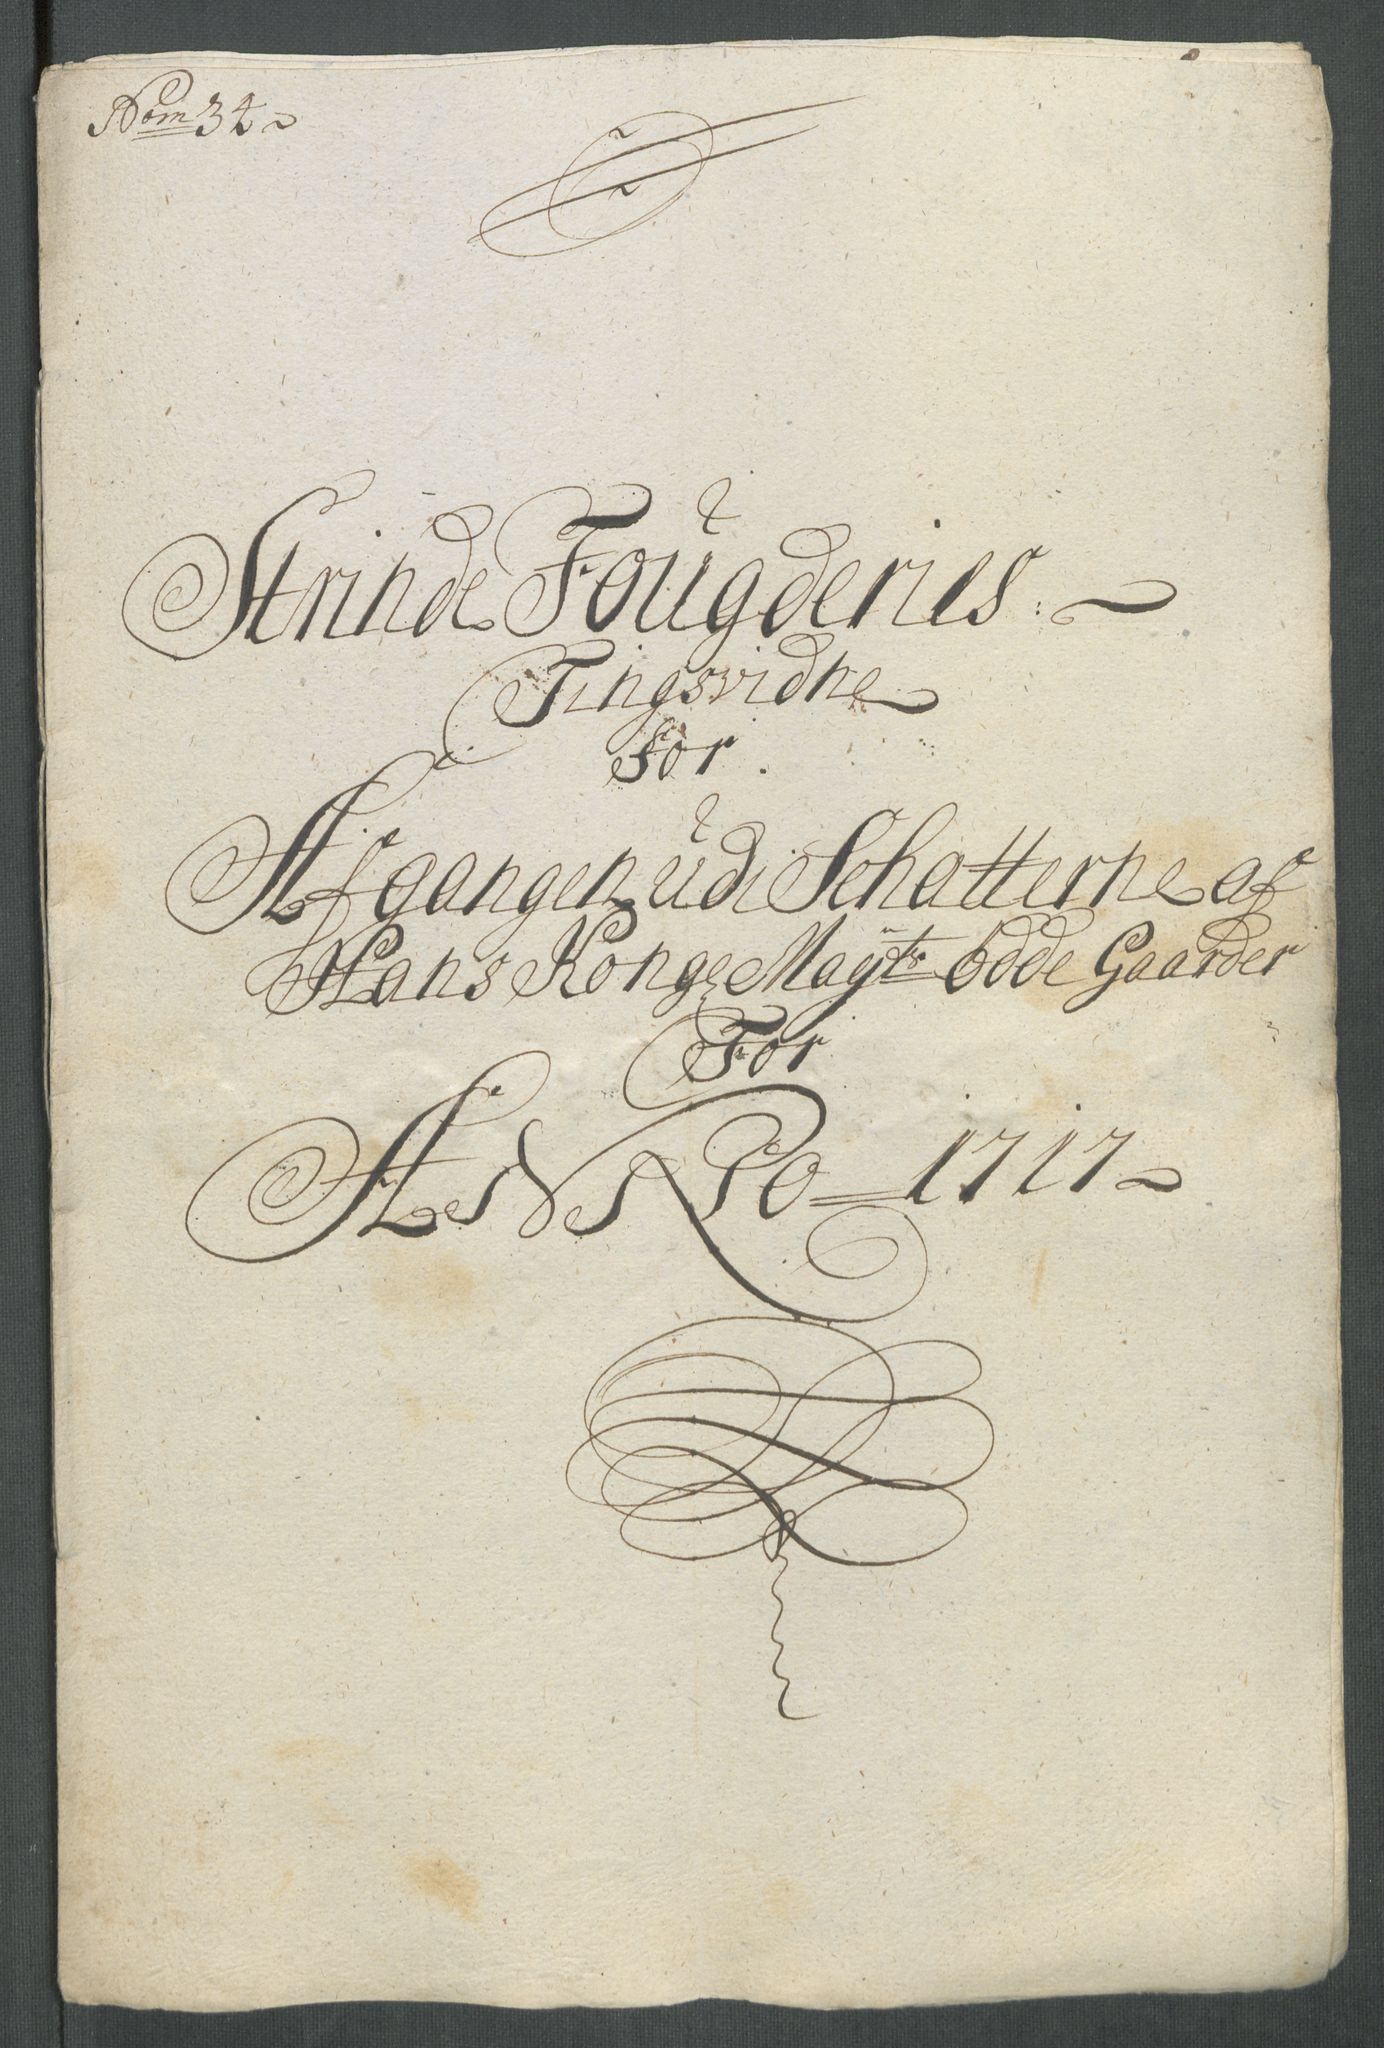 Nom 34
Strinde Foügderies
Tingsvidne
for
Afgangen üdi Schatterne af
Hans Konge Mayts ödde Gaarder
For
ANNO 1717